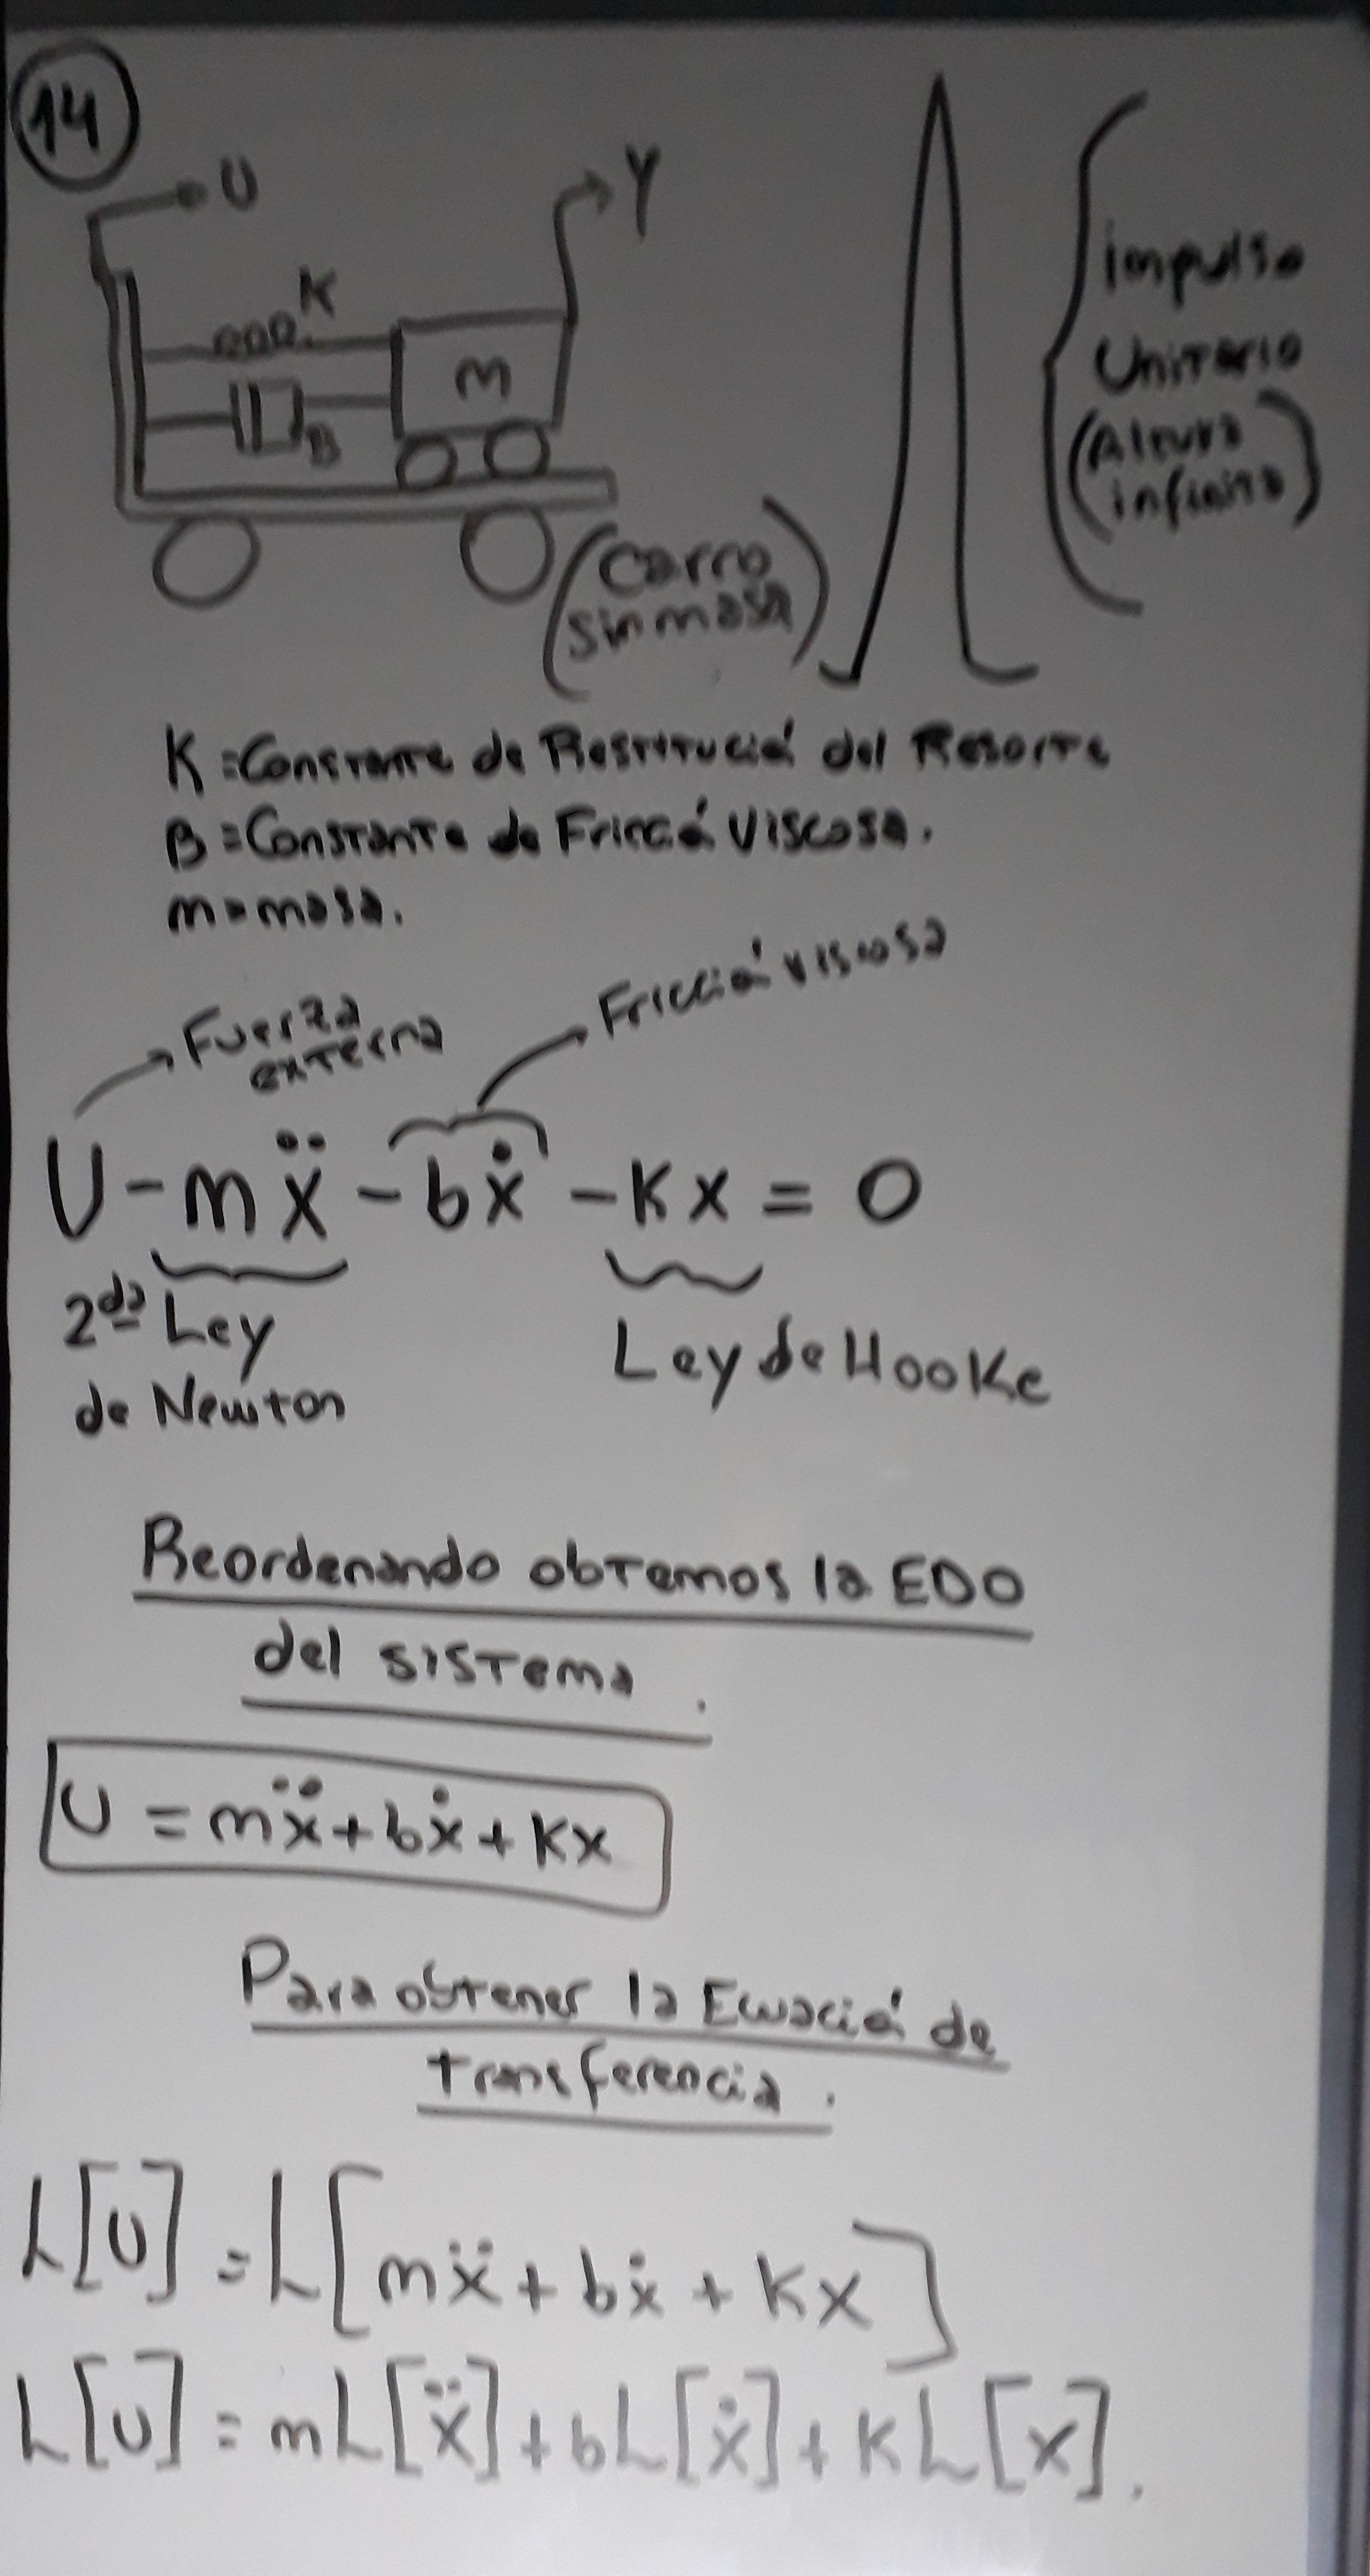 14
U
Y
K
m
B
(Carro
sin masa)
impulso
Unitario
(Altura
infinita)
K = Constante de Restitución del Resorte
B = Constante de Fricción Viscosa.
m = masa.
Fuerza
externa
Fricción viscosa
U - mẍ - bẋ - Kx = 0
2da Ley
de Newton
Ley de Hooke
Reordenando obtemos la EDO
del sistema.
U = mẍ + bẋ + Kx
Para obtener la Ecuación de
transferencia.
L[U] = L[mẍ + bẋ + Kx]
L[U] = mL[ẍ] + bL[ẋ] + KL[x].